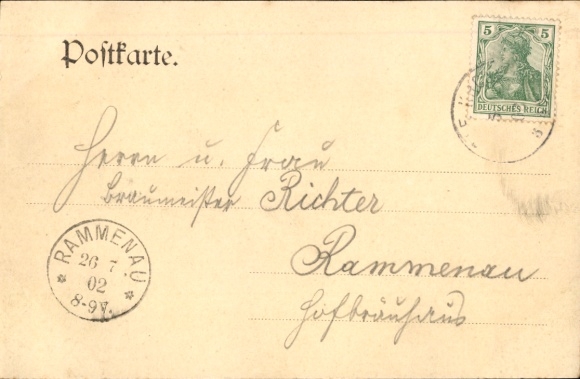 Postkarte.
5 5
DEUTSCHES REICH
Herrn u. Frau
Braumeister Richter
Rammenau
Hofbräuhaus
RAMMENAU
26 7
02
8-9V.